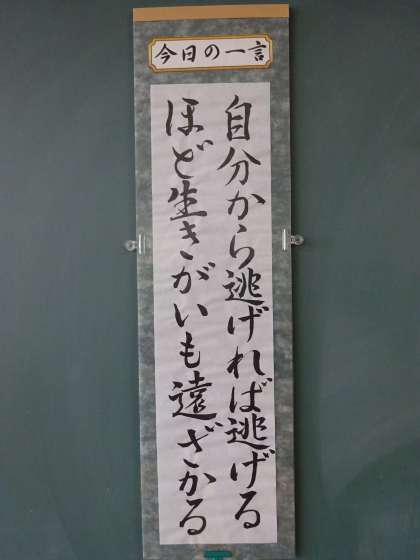 今日の一言
自分から逃げれば逃げる
ほど生きがいも遠ざかる